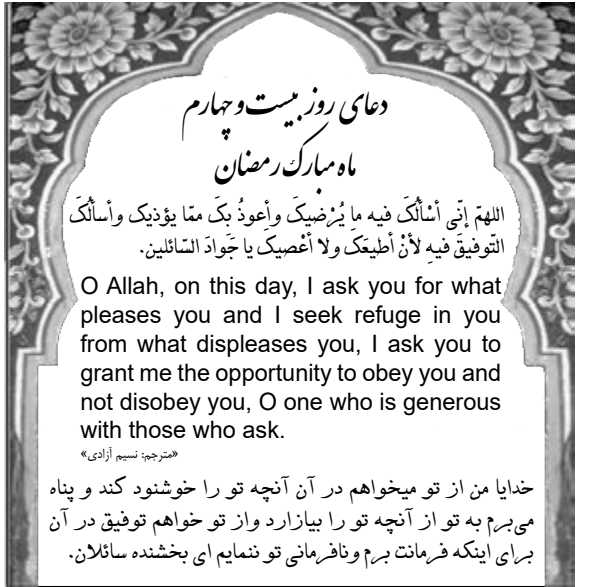 دعای روز بیست و چهارم
ماه مبارک رمضان
اللهمّ إنّی أسْألُکَ فیه ما یُرْضیکَ وأعوذُ بِکَ ممّا یؤذیک وأسألُکَ
التّوفیقَ فیهِ لأنْ أطیعَکَ ولا أعْصیکَ یا جَوادَ السّائلین.
O Allah, on this day, I ask you for what
pleases you and I seek refuge in you
from what displeases you, I ask you to
grant me the opportunity to obey you and
not disobey you, O one who is generous
with those who ask.
«مترجم: نسیم آزادی»
خدایا من از تو میخواهم در آن آنچه تو را خوشنود کند و پناه
می‌برم به تو از آنچه تو را بیازارد واز تو خواهم توفیق در آن
برای اینکه فرمانت برم ونافرمانی تو ننمایم ای بخشنده سائلان.